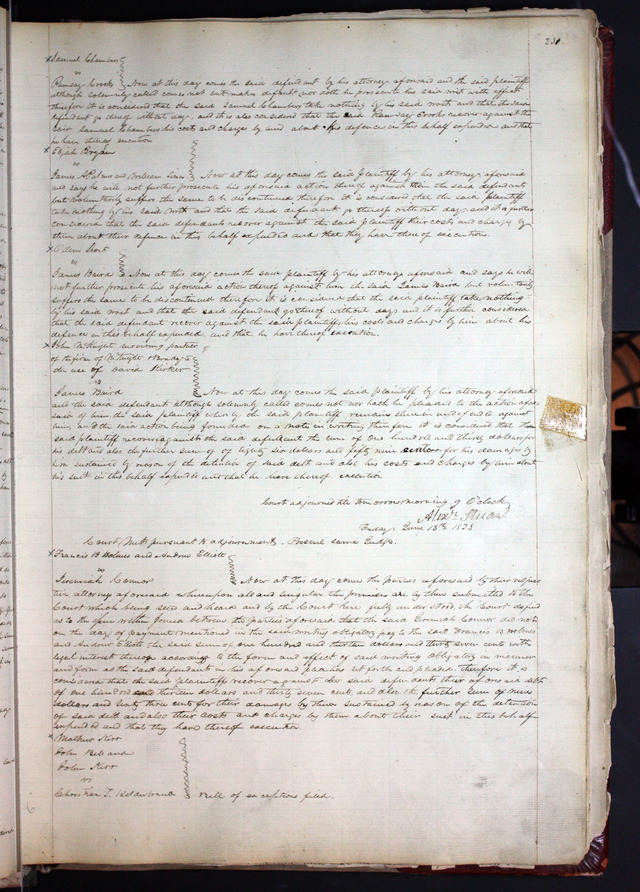 231.
x Samuel Chambers
vs
Ramsay Crooks } Now at this day comes the said defendant by his attorney aforesaid and the said plaintiff
although solemnly called comes not but makes default nor doth he prosecute his said writ with effect
therefore it is considered that the said Samuel Chambers take nothing by his said writ and that the said
defendant go thereof without day. and it is also considered that the said Ramsay Crooks recover against the
said Samuel Chambers his costs and charges by him about his defence in this behalf expended and that
he have thereof execution
x Elijah Bryan
vs
James A Palmer and William } Now at this day comes the said plaintiff by his attorney aforesaid
and says he will not further prosecute his aforesaid action thereof against them the said defendants
but voluntarily suffers the same to be discontinued therefore it is considered that the said plaintiff
take nothing by his said writ and that the said defendants go thereof without day and it is further
considered that the said defendants recover against the said plaintiff their costs and charges by
them about their defence in this behalf expended and that they have thereof execution.
x Short
vs
James Baird } Now at this day comes the said plaintiff by his attorney aforesaid and says he will
not further prosecute his aforesaid action thereof against him the said James Baird but voluntarily
suffers the same to be discontinued therefore it is considered that the said plaintiff take nothing
by his said writ and that the said defendant go thereof without day and it is further considered
that the said defendant recover against the said plaintiff his costs and charges by him about his
defence in this behalf expended and that he have thereof execution
x John McKnight surviving partner
of the firm of McKnight & Brady to
the use of David Kirker
vs
James Baird } Now at this day comes the said plaintiff by his attorney aforesaid
and the said defendant although solemnly called comes not nor hath he pleaded to the action afore
said of him the said plaintiff whereby the said plaintiff remains therein undefended against
him, and the said action being founded on a note in writing therefore it is considered that the
said plaintiff recover against the said defendant the sum of One hundred and thirty dollars for
his debt and also the further sum of of Eighty six dollars and fifty nine cents for his damages by
him sustained by reason of the detention of said debt and also his costs and charges by him about
his suit in this behalf expended and that he have thereof execution
Court adjourned till tomorrow morning 9 O'clock
Alexr. Stuart
Friday June 13th 1823
Court Met pursuant to adjournment. Present same Judge.
x Francis B Holmes and Andrew Elliott
vs
Jeremiah Connor } Now at this day come the parties aforesaid by their respec
tive attorneys aforesaid whereupon all and singular the premises are by them submitted to the
Court which being seen and heard and by the Court here fully understood the Court do find
as to the issue within joined between the parties aforesaid that the said Jeremiah Connor did not
on the day of payment mentioned in the said writing obligatory pay to the said Francis B Holmes
and Andrew Elliott the said sum of one hundred and thirteen dollars and thirty seven cents with
legal interest thereon according to the form and effect of said writing obligatory in manner
and form as the said defendant in his aforesaid plea has set forth and pleaded. therefore it is
considered that the said plaintiffs recover against the said defendant their aforesaid debt
of one hundred and thirteen dollars and thirty seven cents, and also the further sum of nine
dollars and sixty two cents for their damages by them sustained by reason of the detention
of said debt and also their costs and charges by them about their suit in this behalf
expended and that they have thereof execution
x Mathew Kerr
John Bell and
John Kerr
vs
Christian } Bill of exceptions filed.